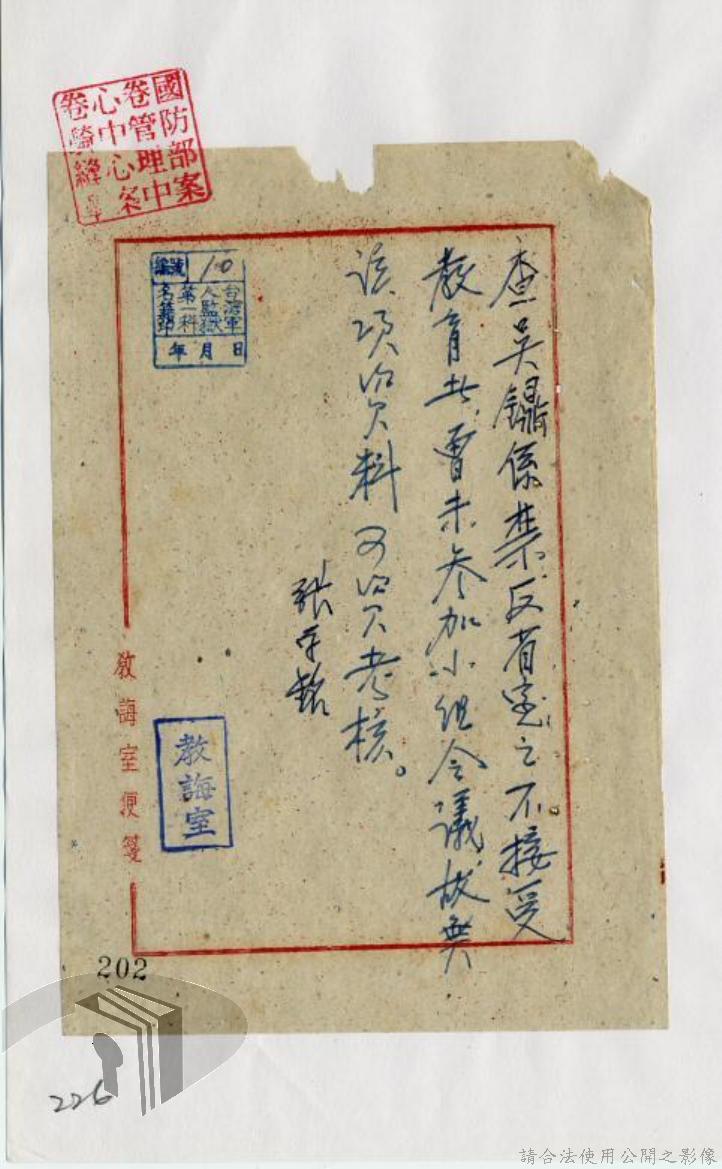 國防部案
卷管理中
心中心案
卷騎縫章
查吳鏞係禁反省室之不接受
教育其曾未參加小組會議故無
該項資料可資考核。
張
編號 10
台灣軍
人監獄
第一科
名籍
年 月 日
教誨室
教誨室便箋
202
226
請合法使用公開之影像